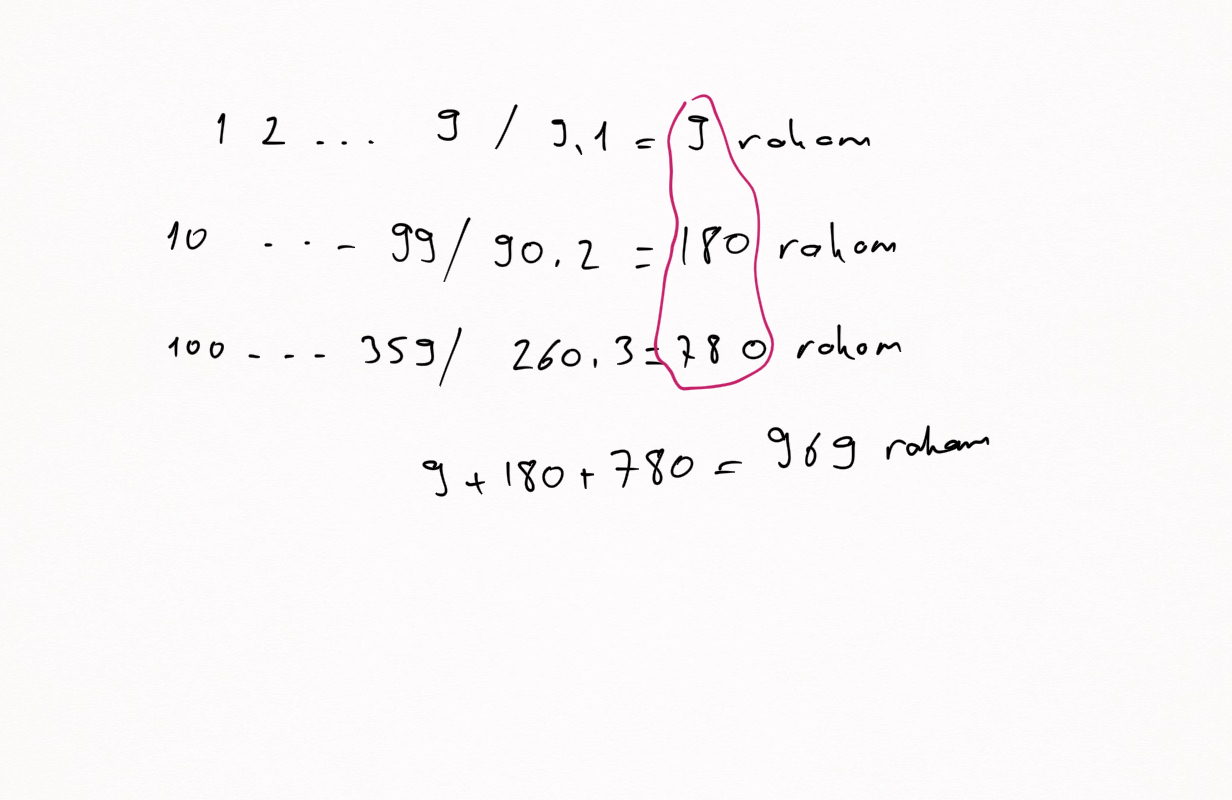 1 2 ... 9 / 9.1 = 9 rakam
10 ... 99 / 90.2 = 180 rakam
100 --- 359 / 260.3 = 780 rakam
9 + 180 + 780 = 969 rakam